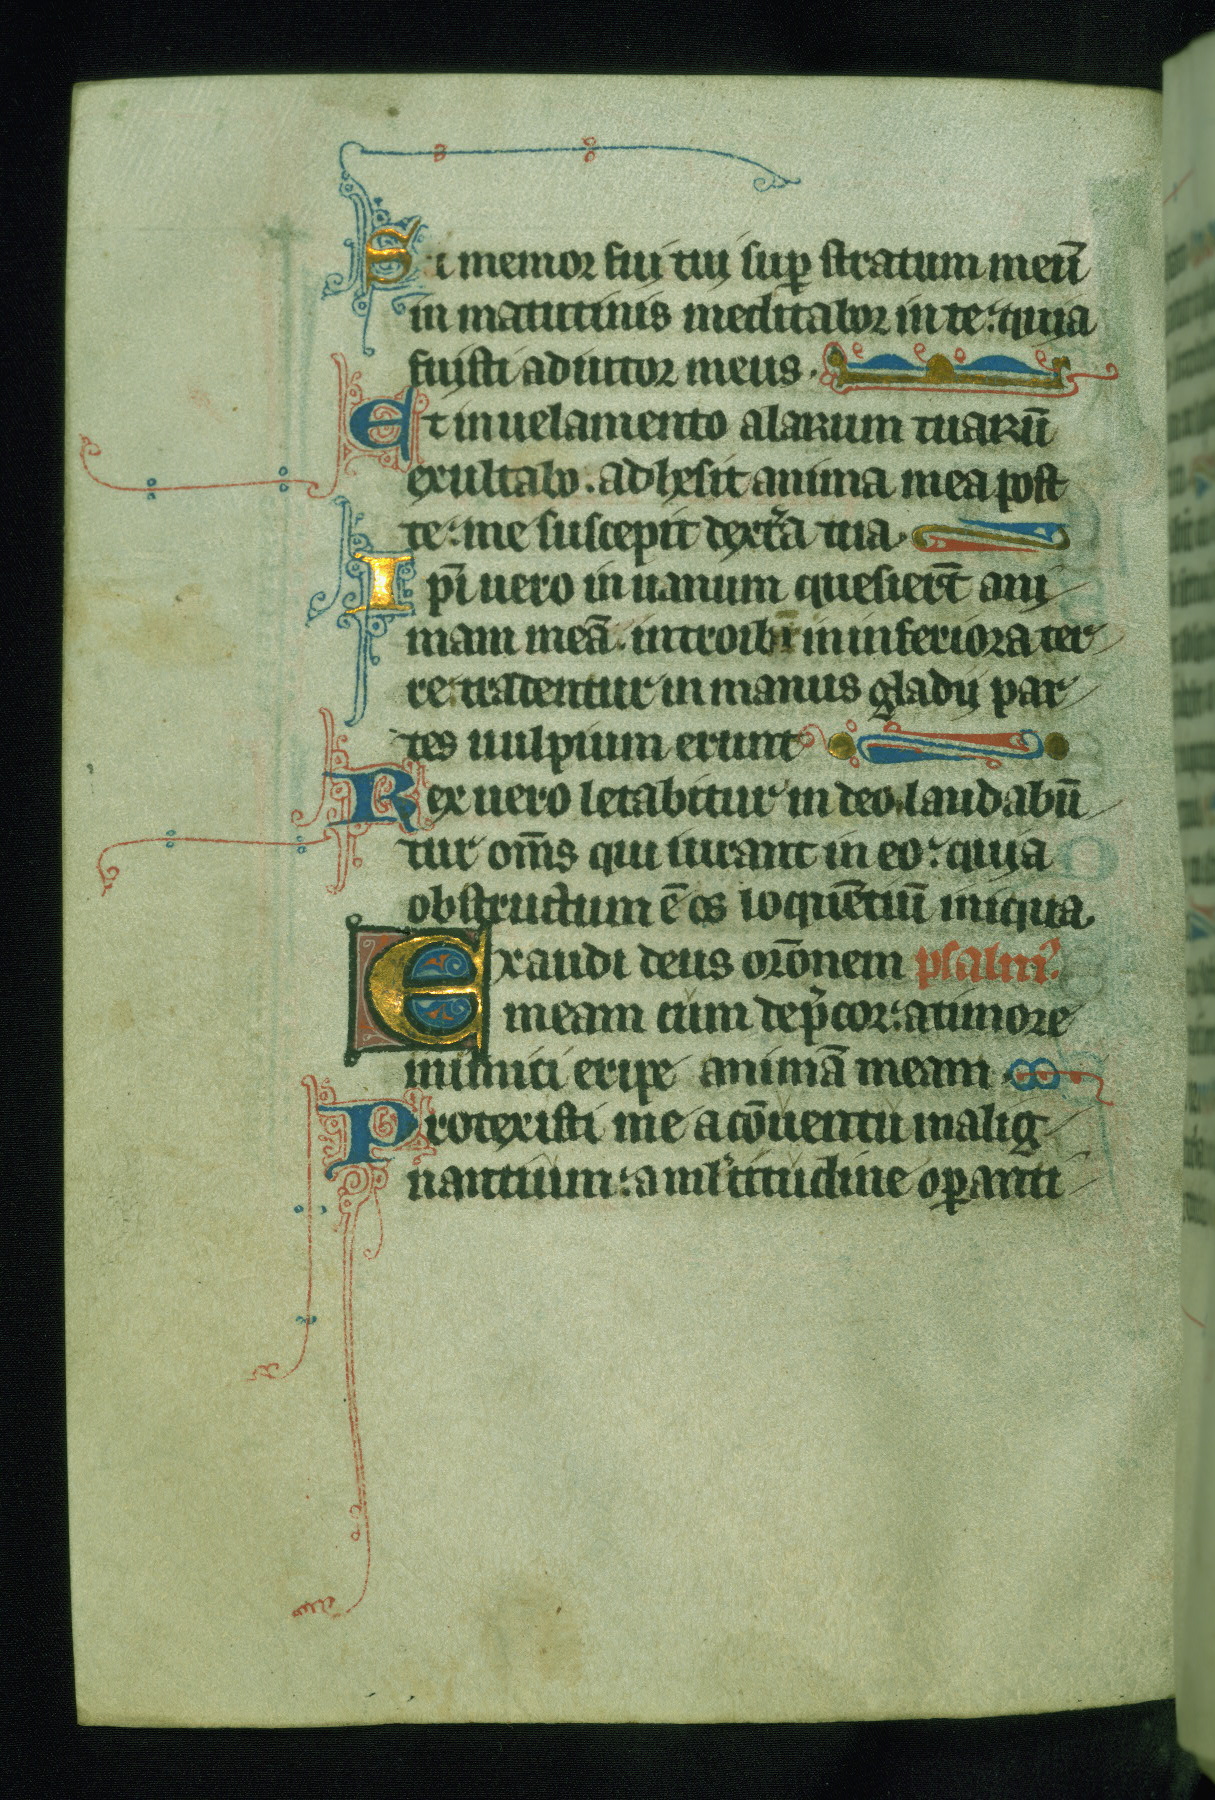 Si memor fui tui suꝑ stratum meū
in matutinis meditabor in te: quia
fuisti adiutor meus.
Et in uelamento alarum tuarū
exultabo. adhesit anima mea post
te: me suscepit dext̃a tua.
Ip̄i uero in uanum quesier̄t ani
mam meā. introibūt in inferiora ter
re: tradentur in manus gladij par
tes uulpium erunt
Rex uero letabitur in deo. laudabū
tur om̄s qui iurant in eo: quia
obstructum ē os loquētiū iniqua.
Exaudi deus or̄onem psalm̃.
meam cum dep̃cor: a timore
inimici eripe animā meam.
Protexisti me a cōuentu malig
nantium: a ml̃titudine oꝑanti